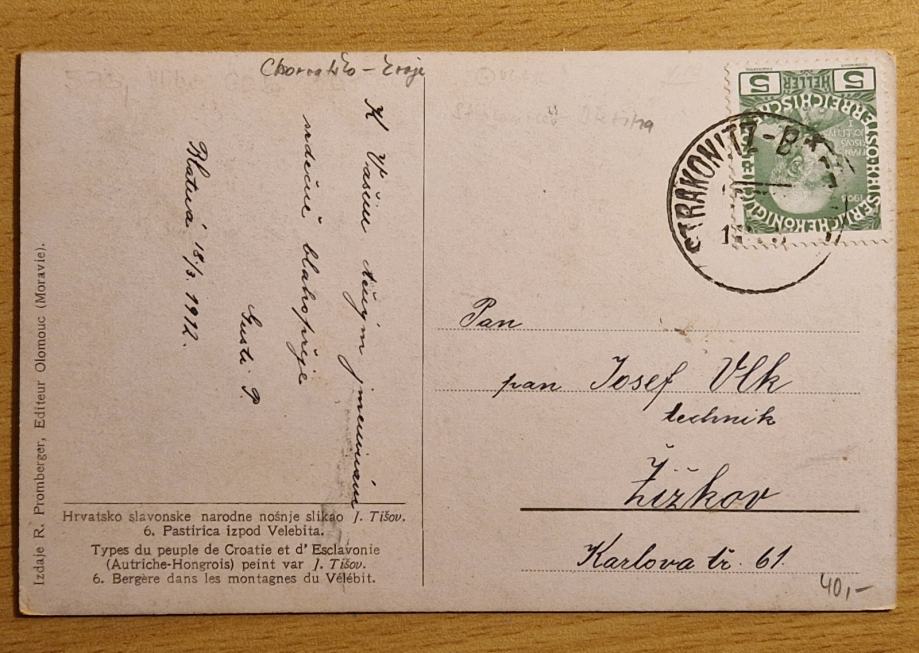 Chorvatsko - kroje
K Vašim ctěným jmeninám
srdečně blahopřeje
Gusti P.
Blatná 18/3. 1912.
Izdaje R. Promberger, Editeur Olomouc (Moravie).
Hrvatsko slavonske narodne nošnje slikao J. Tišov.
6. Pastirica izpod Velebita.
Types du peuple de Croatie et d' Esclavonie
(Autriche-Hongrois) peint var J. Tišov.
6. Bergère dans les montagnes du Vélébit.
5 5
HELLER
KAISERLICHEKÖNIGLICHE
ÖSTERREICHISCHE
1908
STRAKONITZ-B
Pan
pan Josef Vlk
technik
Žižkov
Karlova tř. 61.
40,-